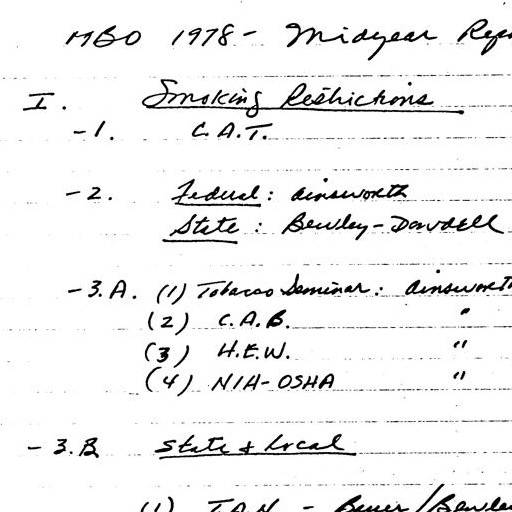 MBO 1978 - Midyear Repo
I. Smoking Restrictions
-1. C.A.T.
-2. Federal: Ainsworth
State: Bewley-Dowdell
-3.A. (1) Tobacco Seminar: Ainsworth
(2) C.A.B. "
(3) H.E.W. "
(4) NIH-OSHA "
-3.B State & Local
(1) T.A.N. - /Bewle